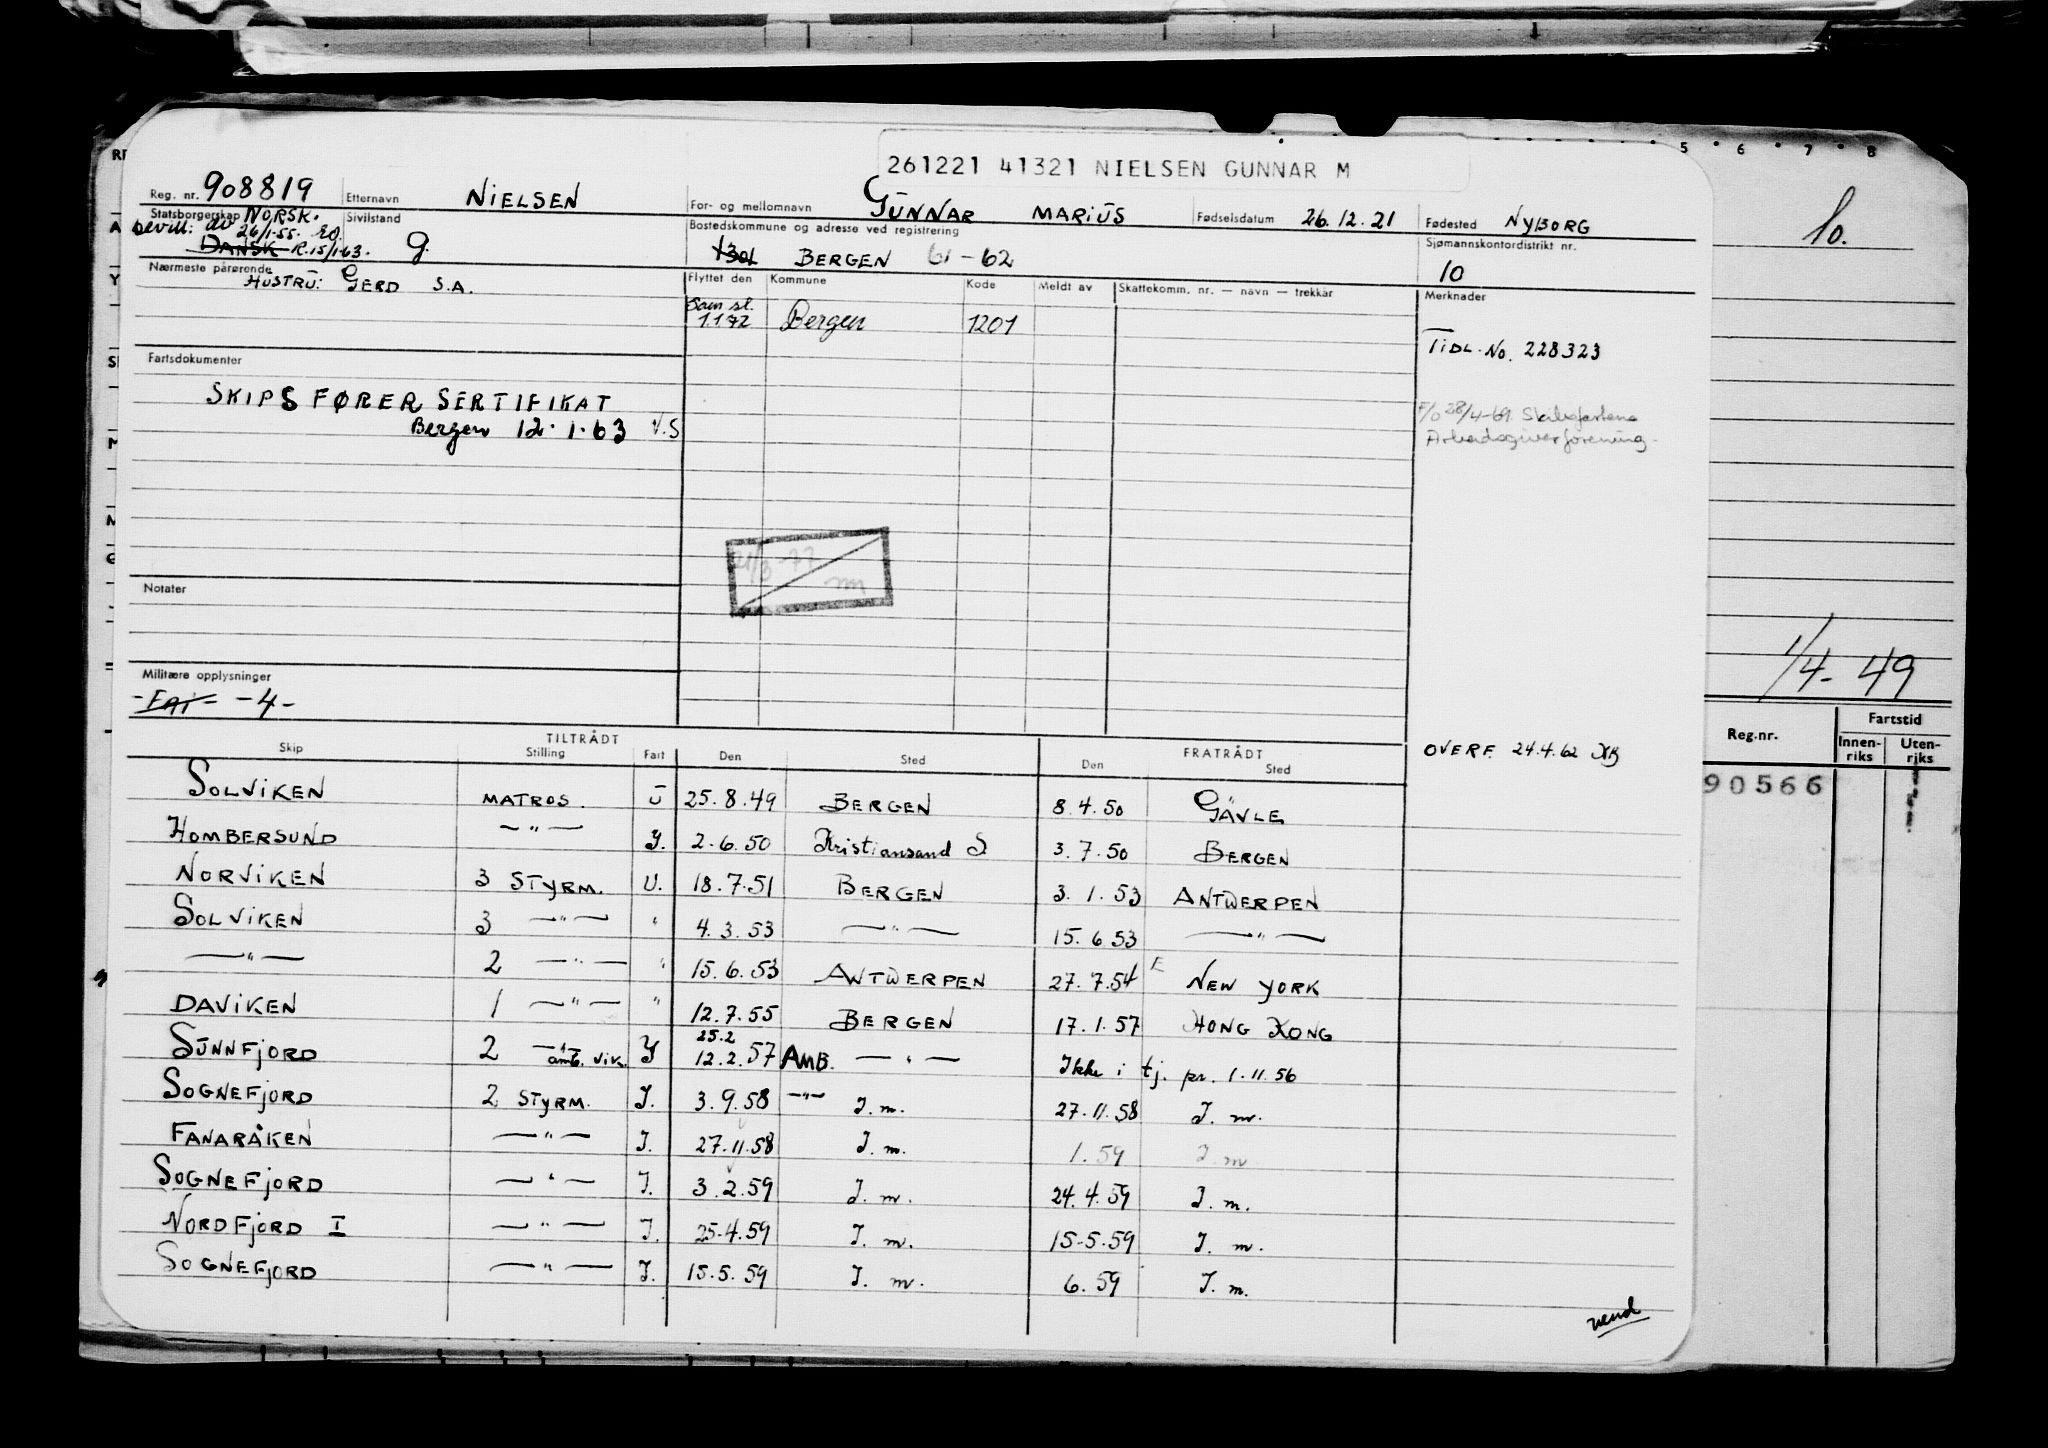 261221 41321 NIELSEN GUNNAR M
Reg. nr. 908819 Etternavn NIELSEN For- og mellomnavn GUNNAR MARIUS Fødselsdatum 26.12.21 Fødested NYBORG
Statsborgerskap NORSK. Sivilstand Bostedskommune og adresse ved registrering Sjømannskontordistrikt nr.
bevill: av 26/1-55. EO.
DANSK R.15/1-63. g. 1301 BERGEN 61-62 10
Nærmeste pårørende HUSTRU: GERD S.A. Flyttet den Kommune Kode Meldt av Skattekomm. nr. — navn — trekkår Merknader
Sam sl.
1.1 72 Bergen 1201
TIDL. No. 228323
Fartsdokumenter
SKIPSFØRER SERTIFIKAT
Bergen 12.1.63 V.S
F/O 28/4-69 Skibsfartens
Arbeidsgiverforening.
21/3-77
Notater
Militære opplysninger
-FAT- -4-
OVERF. 24.4.62
TILTRÅDT FRATRÅDT
Skip Stilling Fart Den Sted Den Sted
SOLVIKEN MATROS. U 25.8.49 BERGEN 8.4.50 GÄVLE
HOMBERSUND —"— I. 2.6.50 Kristiansand S 3.7.50 BERGEN
NORVIKEN 3 STYRM. U. 18.7.51 BERGEN 3.1.53 ANTWERPEN
SOLVIKEN 3 —"— " 4.3.53 —"— 15.6.53 —"—
—"— 2 —"— " 15.6.53 ANTWERPEN 27.7.54 E NEW YORK
DAVIKEN 1 —"— " 12.7.55 BERGEN 17.1.57 HONG KONG
25.2
SUNNFJORD 2 —"— amb. vik. I 12.2.57 AMB. —"— Ikke i tj. pr. 1.11.56
SOGNEFJORD 2 STYRM. I. 3.9.58 —"— I.m. 27.11.58 I.m.
FANARÅKEN —"— I. 27.11.58 I.m. 1.59 I.m
SOGNEFJORD —"— I. 3.2.59 I.m. 24.4.59 I.m.
NORDFJORD I —"— I. 25.4.59 I.m. 15.5.59 I.m.
SOGNEFJORD —"— I. 15.5.59 I.m. 6.59 I.m.
vend
5 6 7 8
10.
1/4-49
Reg.nr. Fartstid
Innenriks Utenriks
90566